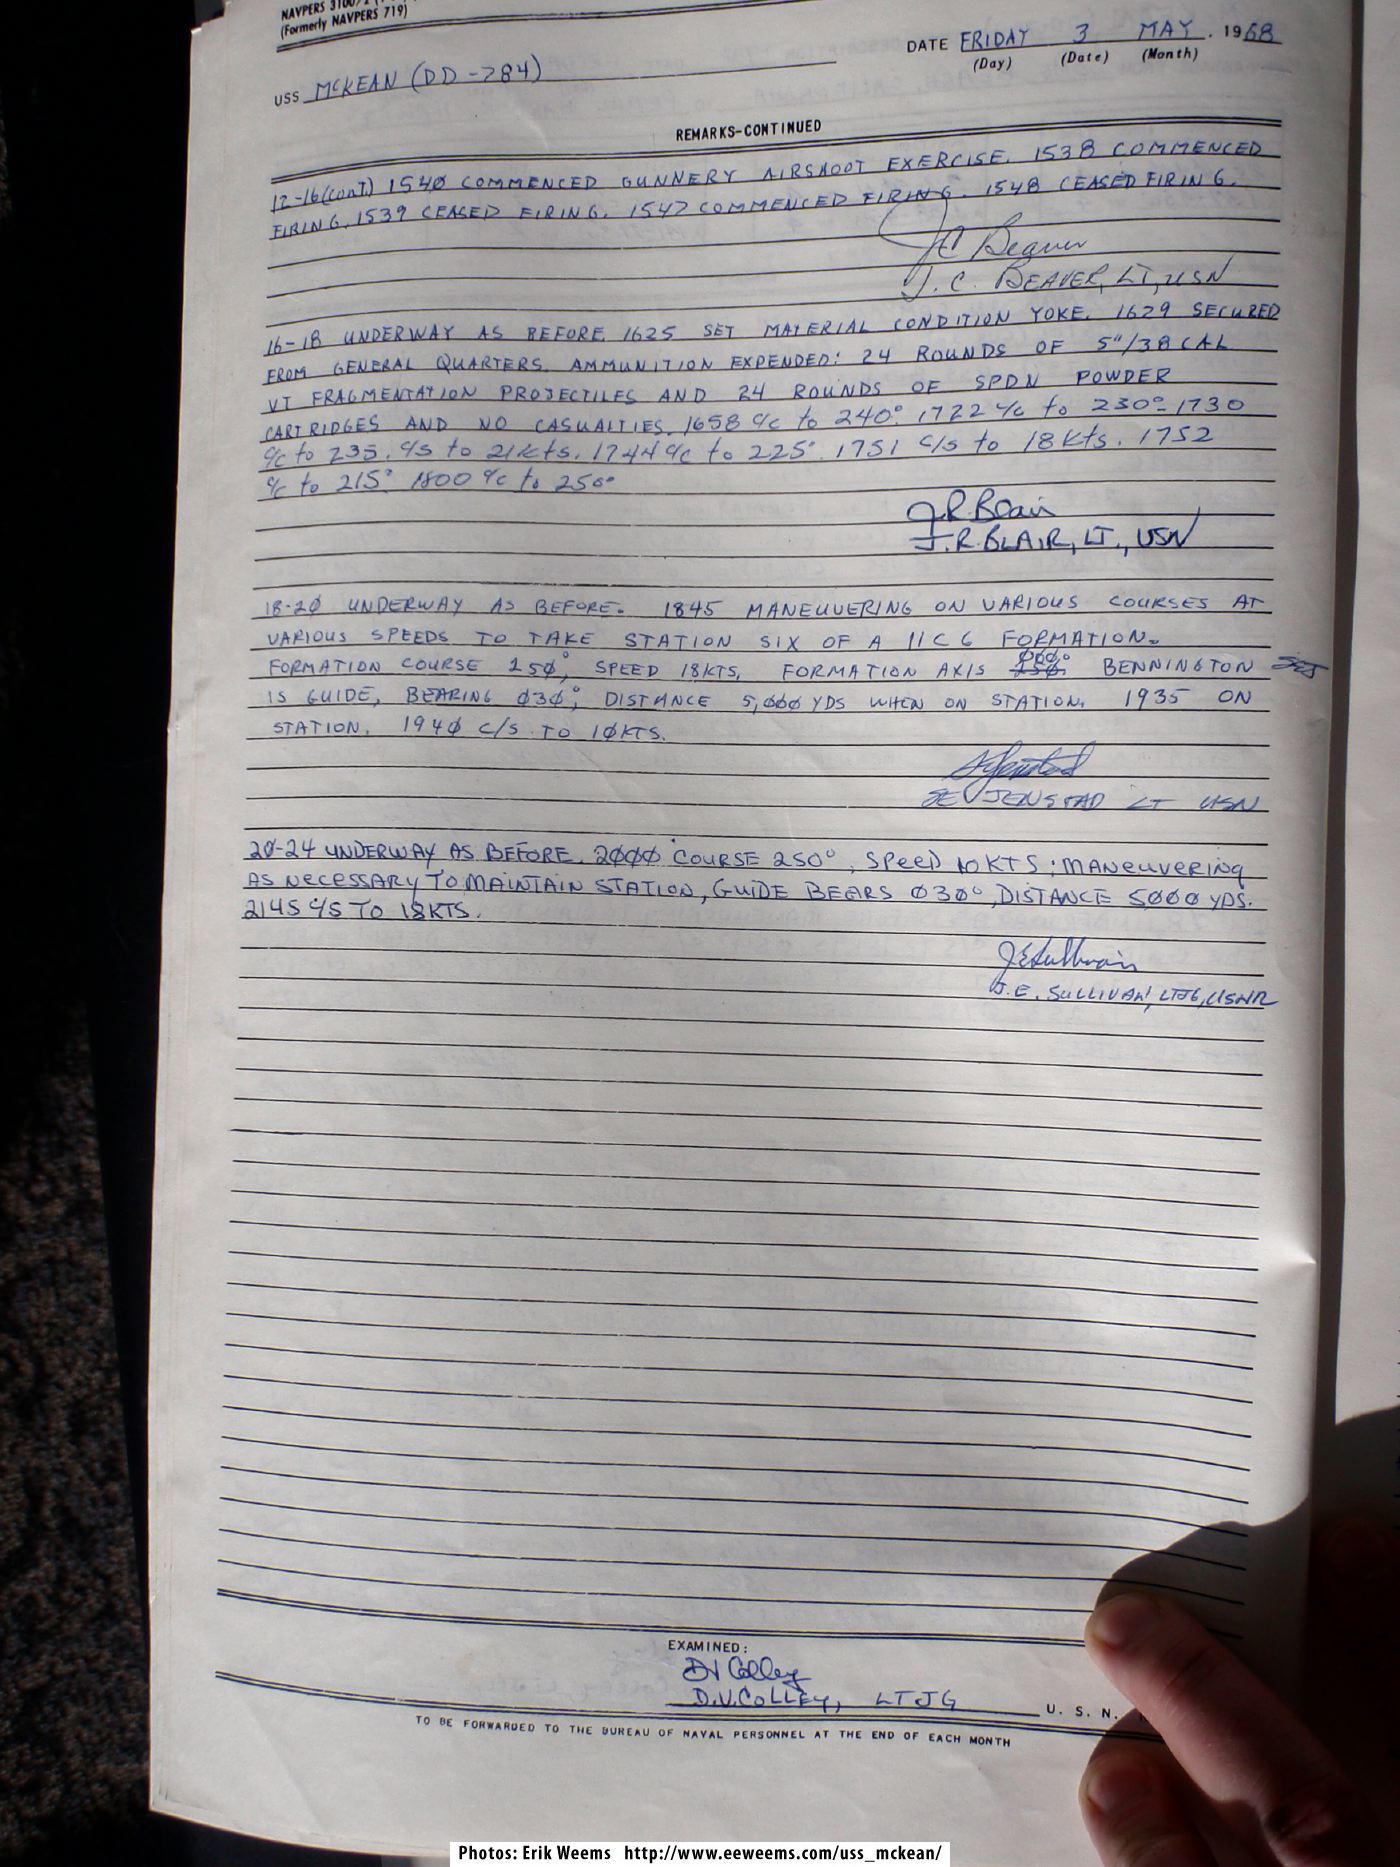 NAVPERS 3100/2
(Formerly NAVPERS 719)
DATE FRIDAY 3 MAY . 1968
(Day) (Date) (Month)
USS MCKEAN (DD-784)
REMARKS-CONTINUED
12-16(CONT) 1540 COMMENCED GUNNERY AIRSHOOT EXERCISE. 1538 COMMENCED
FIRING. 1539 CEASED FIRING. 1547 COMMENCED FIRING. 1548 CEASED FIRING.
JC Beaver
J. C. BEAVER, LT, USN
16-18 UNDERWAY AS BEFORE. 1625 SET MATERIAL CONDITION YOKE. 1629 SECURED
FROM GENERAL QUARTERS. AMMUNITION EXPENDED: 24 ROUNDS OF 5"/38 CAL
VT FRAGMENTATION PROJECTILES AND 24 ROUNDS OF SPDN POWDER
CARTRIDGES AND NO CASUALTIES. 1658 c/c to 240°. 1722 c/c to 230°. 1730
c/c to 235. c/s to 21 kts. 1744 c/c to 225°. 1751 c/s to 18 kts. 1752
c/c to 215° 1800 c/c to 250°
J.R. Blair
J. R. BLAIR, LT., USN
18-20 UNDERWAY AS BEFORE. 1845 MANEUVERING ON VARIOUS COURSES AT
VARIOUS SPEEDS TO TAKE STATION SIX OF A 11C6 FORMATION.
FORMATION COURSE 250°, SPEED 18KTS, FORMATION AXIS 000° 250° BENNINGTON SEJ
IS GUIDE, BEARING 030°, DISTANCE 5,000 YDS WHEN ON STATION. 1935 ON
STATION. 1940 C/S TO 10KTS.
SE JENSTAD LT USN
20-24 UNDERWAY AS BEFORE. 2000 COURSE 250°, SPEED 10 KTS; MANEUVERING
AS NECESSARY TO MAINTAIN STATION, GUIDE BEARS 030°, DISTANCE 5000 YDS.
2145 C/S TO 18KTS.
JE Sullivan
J. E. SULLIVAN, LTJG, USNR
EXAMINED:
DV Colley
D.V. COLLEY, LTJG
U. S. N.
TO BE FORWARDED TO THE BUREAU OF NAVAL PERSONNEL AT THE END OF EACH MONTH
Photos: Erik Weems http://www.eeweems.com/uss_mckean/